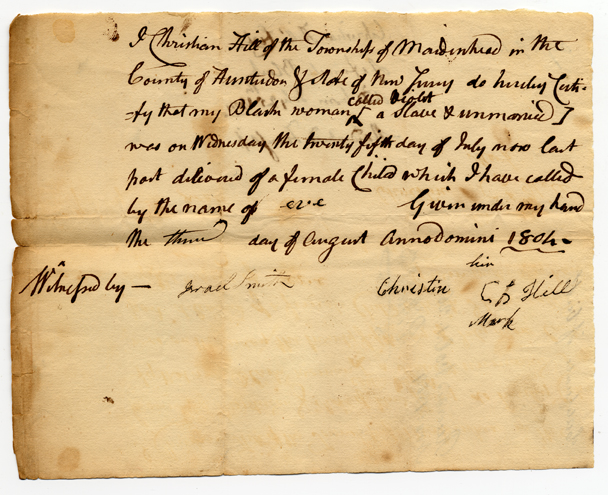 I Christian Hill of the Township of Maidenhead in the
County of Hunterdon & State of New Jersey do hereby Certi-
-fy that my Black woman ^ called a Slave & unmarried
was on Wednesday the twenty fifth day of July now last
past delivered of a female Child which I have called
by the name of eve Given under my hand
the third day of August Annodomini 1804-
Witnessed by — Israel Smith
his
Christin Hill
Mark